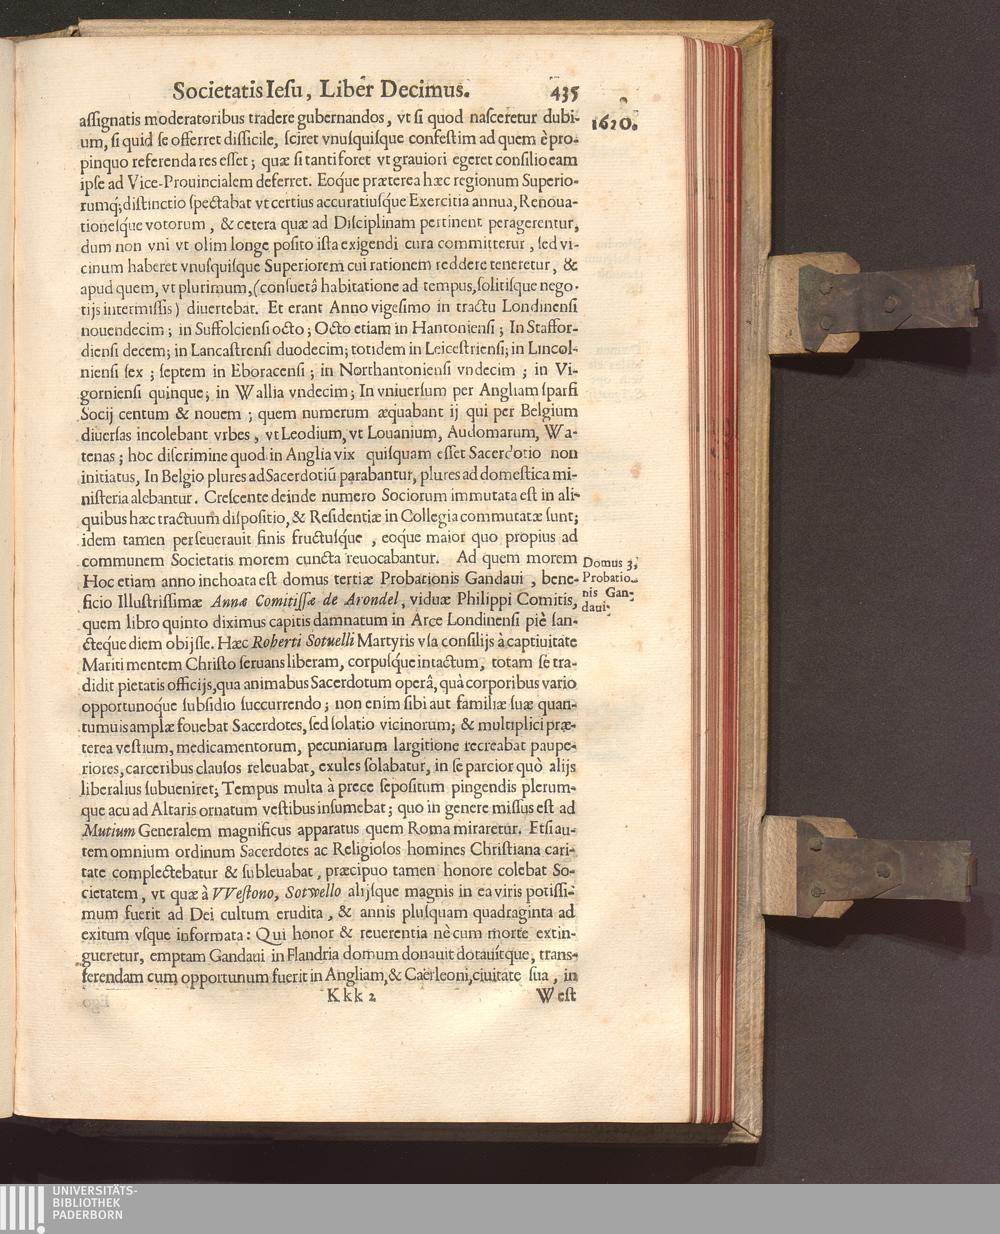 Societatis Iesu, Liber Decimus. 435
1620.
assignatis moderatoribus tradere gubernandos, vt si quod nasceretur dubi-
um, si quid se offerret difficile, sciret vnusquisque confestim ad quem è pro-
pinquo referenda res esset; quæ si tanti foret vt grauiori egeret consilio eam
ipse ad Vice-Prouincialem deferret. Eoq́ue præterea hæc regionum Superio-
rumq́; distinctio spectabat vt certius accuratiusq́ue Exercitia annua, Renoua-
tionesque votorum, & cetera quæ ad Disciplinam pertinent peragerentur,
dum non vni vt olim longe posito ista exigendi cura committerur, sed vi-
cinum haberet vnusquisque Superiorem cui rationem reddere teneretur, &
apud quem, vt plurimum, (consuetâ habitatione ad tempus, solitisque nego-
tijs intermissis) diuertebat. Et erant Anno vigesimo in tractu Londinensi
nouendecim; in Suffolciensi octo; Octo etiam in Hantoniensi; In Staffor-
diensi decem; in Lancastrensi duodecim; totidem in Leicestriensi; in Lincol-
niensi sex; septem in Eboracensi; in Northantoniensi vndecim; in Vi-
gorniensi quinque; in Wallia vndecim; In vniuersum per Angliam sparsi
Socij centum & nouem; quem numerum æquabant ij qui per Belgium
diuersas incolebant vrbes, vt Leodium, vt Louanium, Audomarum, Wa-
tenas; hoc discrimine quod in Anglia vix quisquam esset Sacerdotio non
initiatus, In Belgio plures ad Sacerdotiũ parabantur, plures ad domestica mi-
nisteria alebantur. Crescente deinde numero Sociorum immutata est in ali-
quibus hæc tractuum dispositio, & Residentiæ in Collegia commutatæ sunt;
idem tamen perseuerauit finis fructusq́ue, eoque maior quo propius ad
communem Societatis morem cuncta reuocabantur. Ad quem morem
Hoc etiam anno inchoata est domus tertiæ Probationis Gandaui, bene-
ficio Illustrissimæ Annæ Comitissæ de Arondel, viduæ Philippi Comitis,
quem libro quinto diximus capitis damnatum in Arce Londinensi piè san-
cteque diem obijsse. Hæc Roberti Sotuelli Martyris vsa consilijs à captiuitate
Mariti mentem Christo seruans liberam, corpusq́ue intactum, totam sè tra-
didit pietatis officijs, qua animabus Sacerdotum operâ, quà corporibus vario
opportunoque subsidio succurrendo; non enim sibi aut familiæ suæ quan-
tumuis amplæ fouebat Sacerdotes, sed solatio vicinorum; & multiplici præ-
terea vestium, medicamentorum, pecuniarum largitione recreabat paupe-
riores, carceribus clausos releuabat, exules solabatur, in sè parcior quò alijs
liberalius subueniret; Tempus multa à prece sepositum pingendis plerum-
que acu ad Altaris ornatum vestibus insumebat; quo in genere missus est ad
Mutium Generalem magnificus apparatus quem Roma miraretur. Etsi au-
tem omnium ordinum Sacerdotes ac Religiosos homines Christiana cari-
tate complectebatur & subleuabat, præcipuo tamen honore colebat So-
cietatem, vt quæ à VVestono, Sotwello alijsque magnis in ea viris potissi-
mum fuerit ad Dei cultum erudita, & annis plusquam quadraginta ad
exitum vsque informata: Qui honor & reuerentia nè cum morte extin-
gueretur, emptam Gandaui in Flandria domum donauit dotauítque, trans-
ferendam cum opportunum fuerit in Angliam, & Caërleoni, ciuitate sua, in
Domus 3.
Probatio-
nis Gan-
daui.
Kkk 2 West
UNIVERSITÄTS-
BIBLIOTHEK
PADERBORN